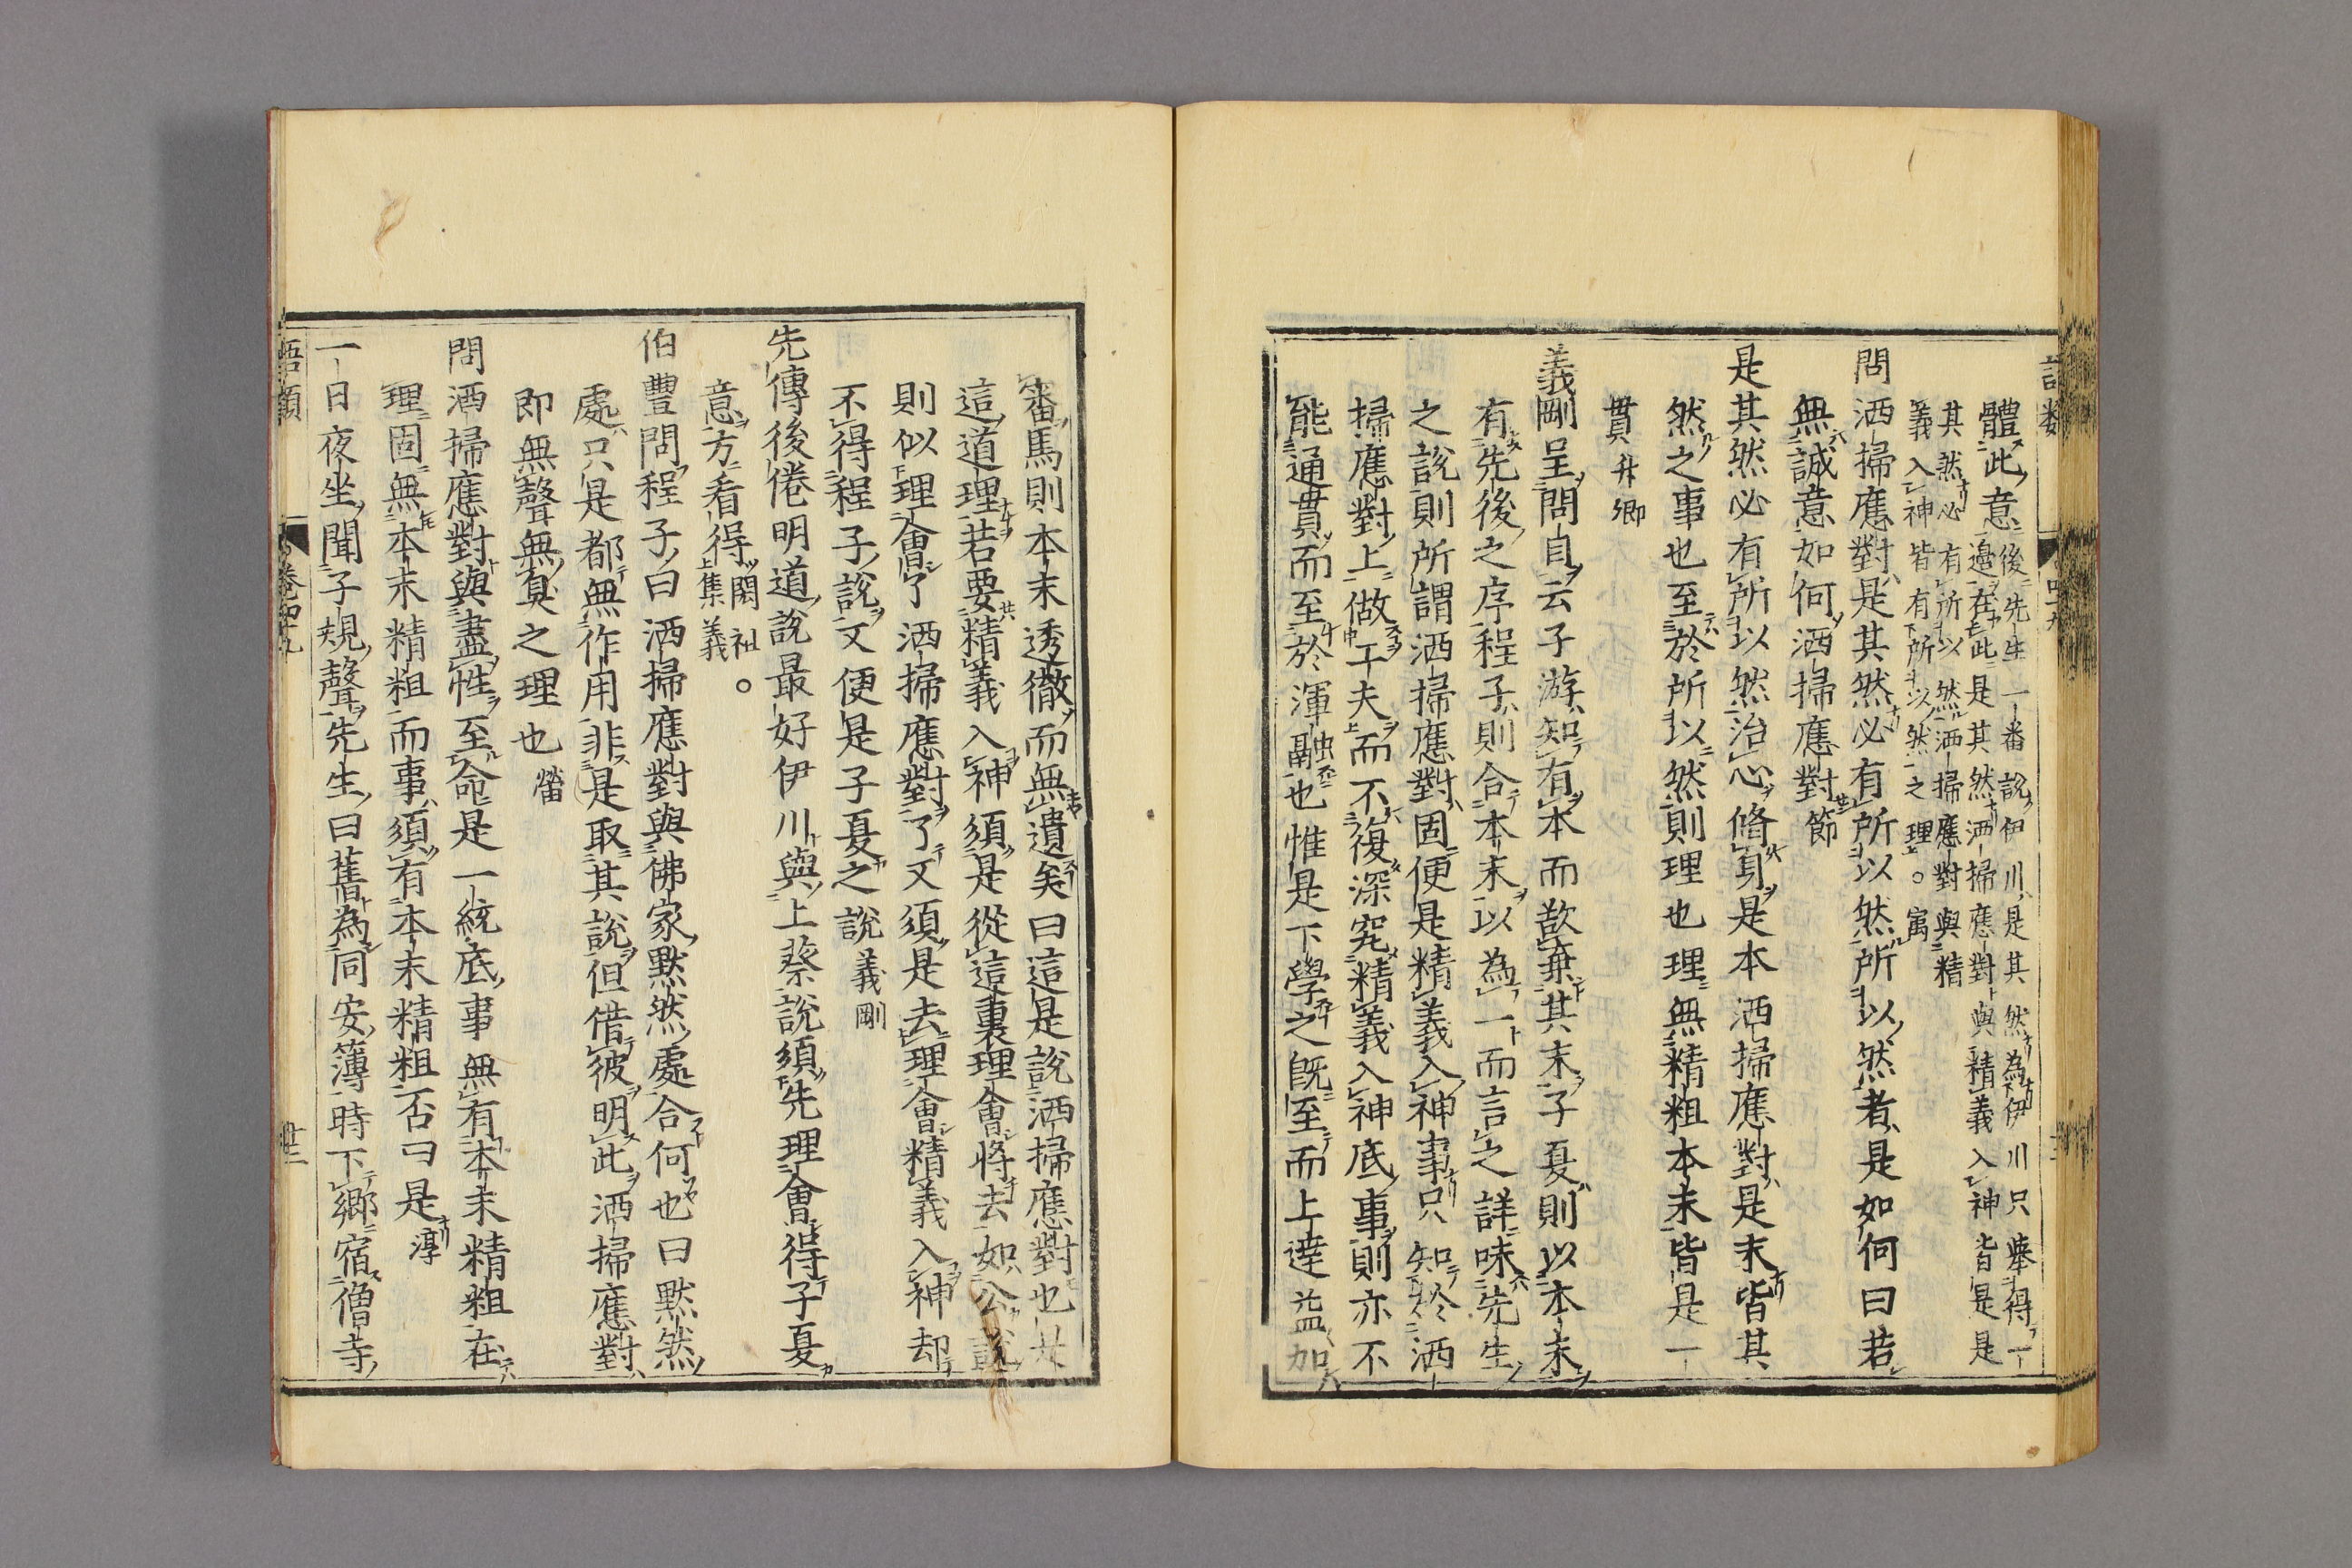 體此意 後先生一番說伊川是其然為伊川只舉得一
邉在此是其然洒掃應對與精義入神皆是是
其然必有所以然洒掃應對與精
義入神皆有所以然之理。寓
問洒掃應對是其然必有所以然所以然者是如何曰若
無誠意如何洒掃應對節
是其然必有所以然治心脩身是本洒掃應對是末皆其
然之事也至於所以然則理也理無精粗本末皆是一
貫升卿
義剛呈問自云子游知有本而欲棄其末子夏則以本末
有先後之序程子則合本末以為一而言之詳味先生
之說則所謂洒掃應對固便是精義入神事只知於洒
掃應對上做工夫而不復深究精義入神底事則亦不
能通貫而至於渾融也惟是下學之既至而上達益加
審焉則本末透徹而無遺矣曰這是說洒掃應對也是
這道理若要精義入神須是從這裏理會將去如公說
則似理會了洒掃應對了又須是去理會精義入神却
不得程子說又便是子夏之說義剛
先傳後倦明道說最好伊川與上蔡說須先理會得子夏
意方看得閎祖
上集義。
伯豐問程子曰洒掃應對與佛家默然處合何也曰默然
處只是都無作用非是取其說但借彼明此洒掃應對
即無聲無臭之理也㽦
問洒掃應對與盡性至命是一統底事無有本末精粗在
理固無本末精粗而事須有本末精粗否曰是淳
一日夜坐聞子規聲先生曰舊為同安簿時下鄉宿僧寺
語類
卷四十九
廿二